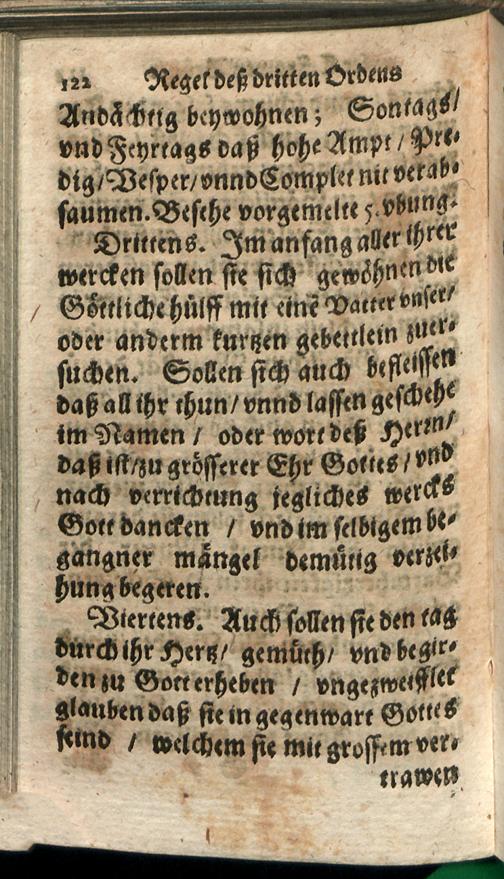 122 Regel deß dritten Ordens
Andächtig beywohnen; Sontags/
vnd Feyrtags daß hohe Ampt / Pre-
dig/ Vesper/ vnnd Complet nit verab-
saumen. Besehe vorgemelte 5. vbung.
Drittens. Im anfang aller ihrer
wercken sollen sie sich gewöhnen die
Göttliche hülff mit einē Vatter vnser/
oder anderm kurtzen gebettlein zuer-
suchen. Sollen sich auch befleissen
daß all ihr thun/ vnnd lassen geschehe
im Namen / oder wort deß Herrn/
daß ist/ zu grösserer Ehr Gottes / vnd
nach verrichtung jegliches wercks
Gott dancken / vnd im selbigem be-
gangner mängel demütig verzei-
hung begeren.
Viertens. Auch sollen sie den tag
durch ihr Hertz/ gemüth/ vnd begir-
den zu Gott erheben / vngezweifflet
glauben daß sie in gegenwart Gottes
seind / welchem sie mit grossem ver-
trawen